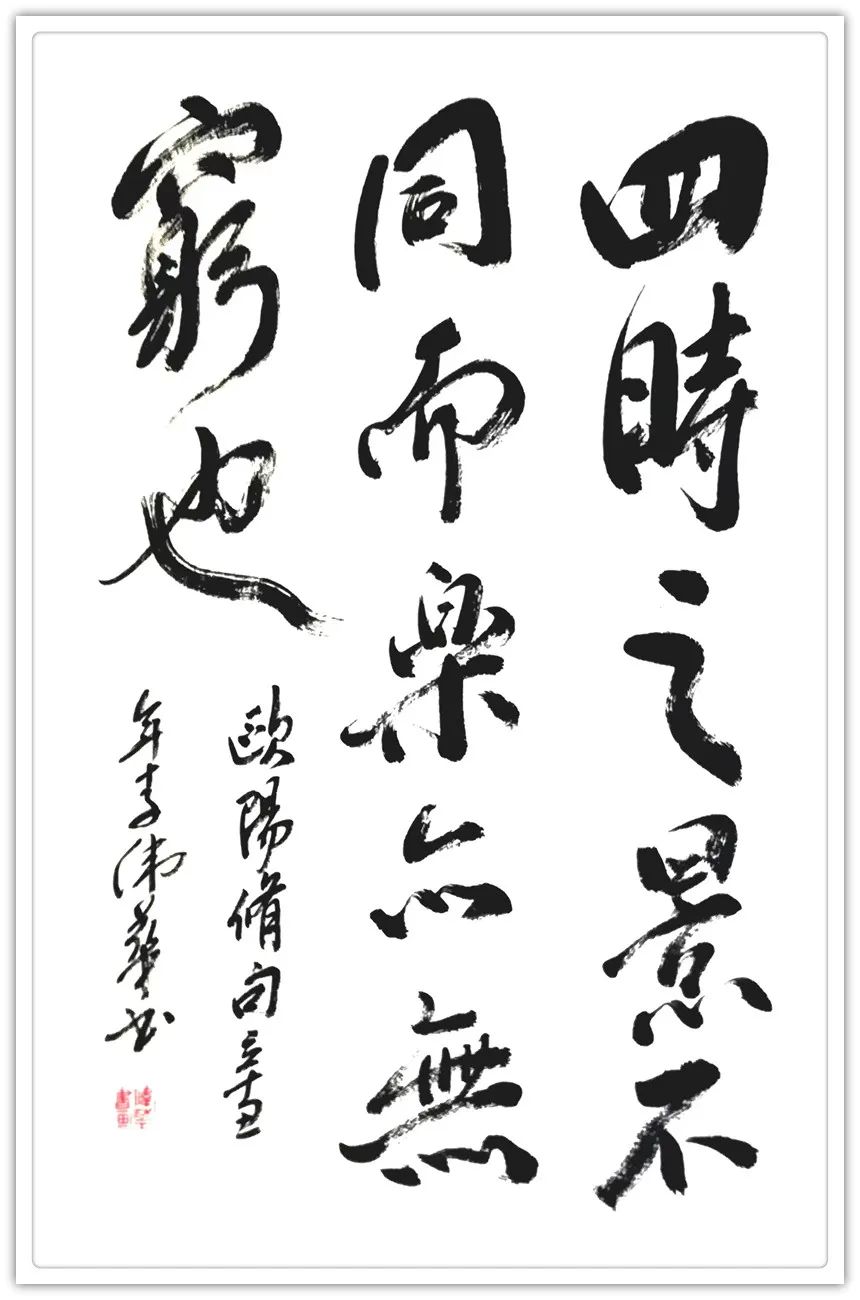 四時之景不
同而樂亦無
窮也
歐陽脩句
年李偉華書